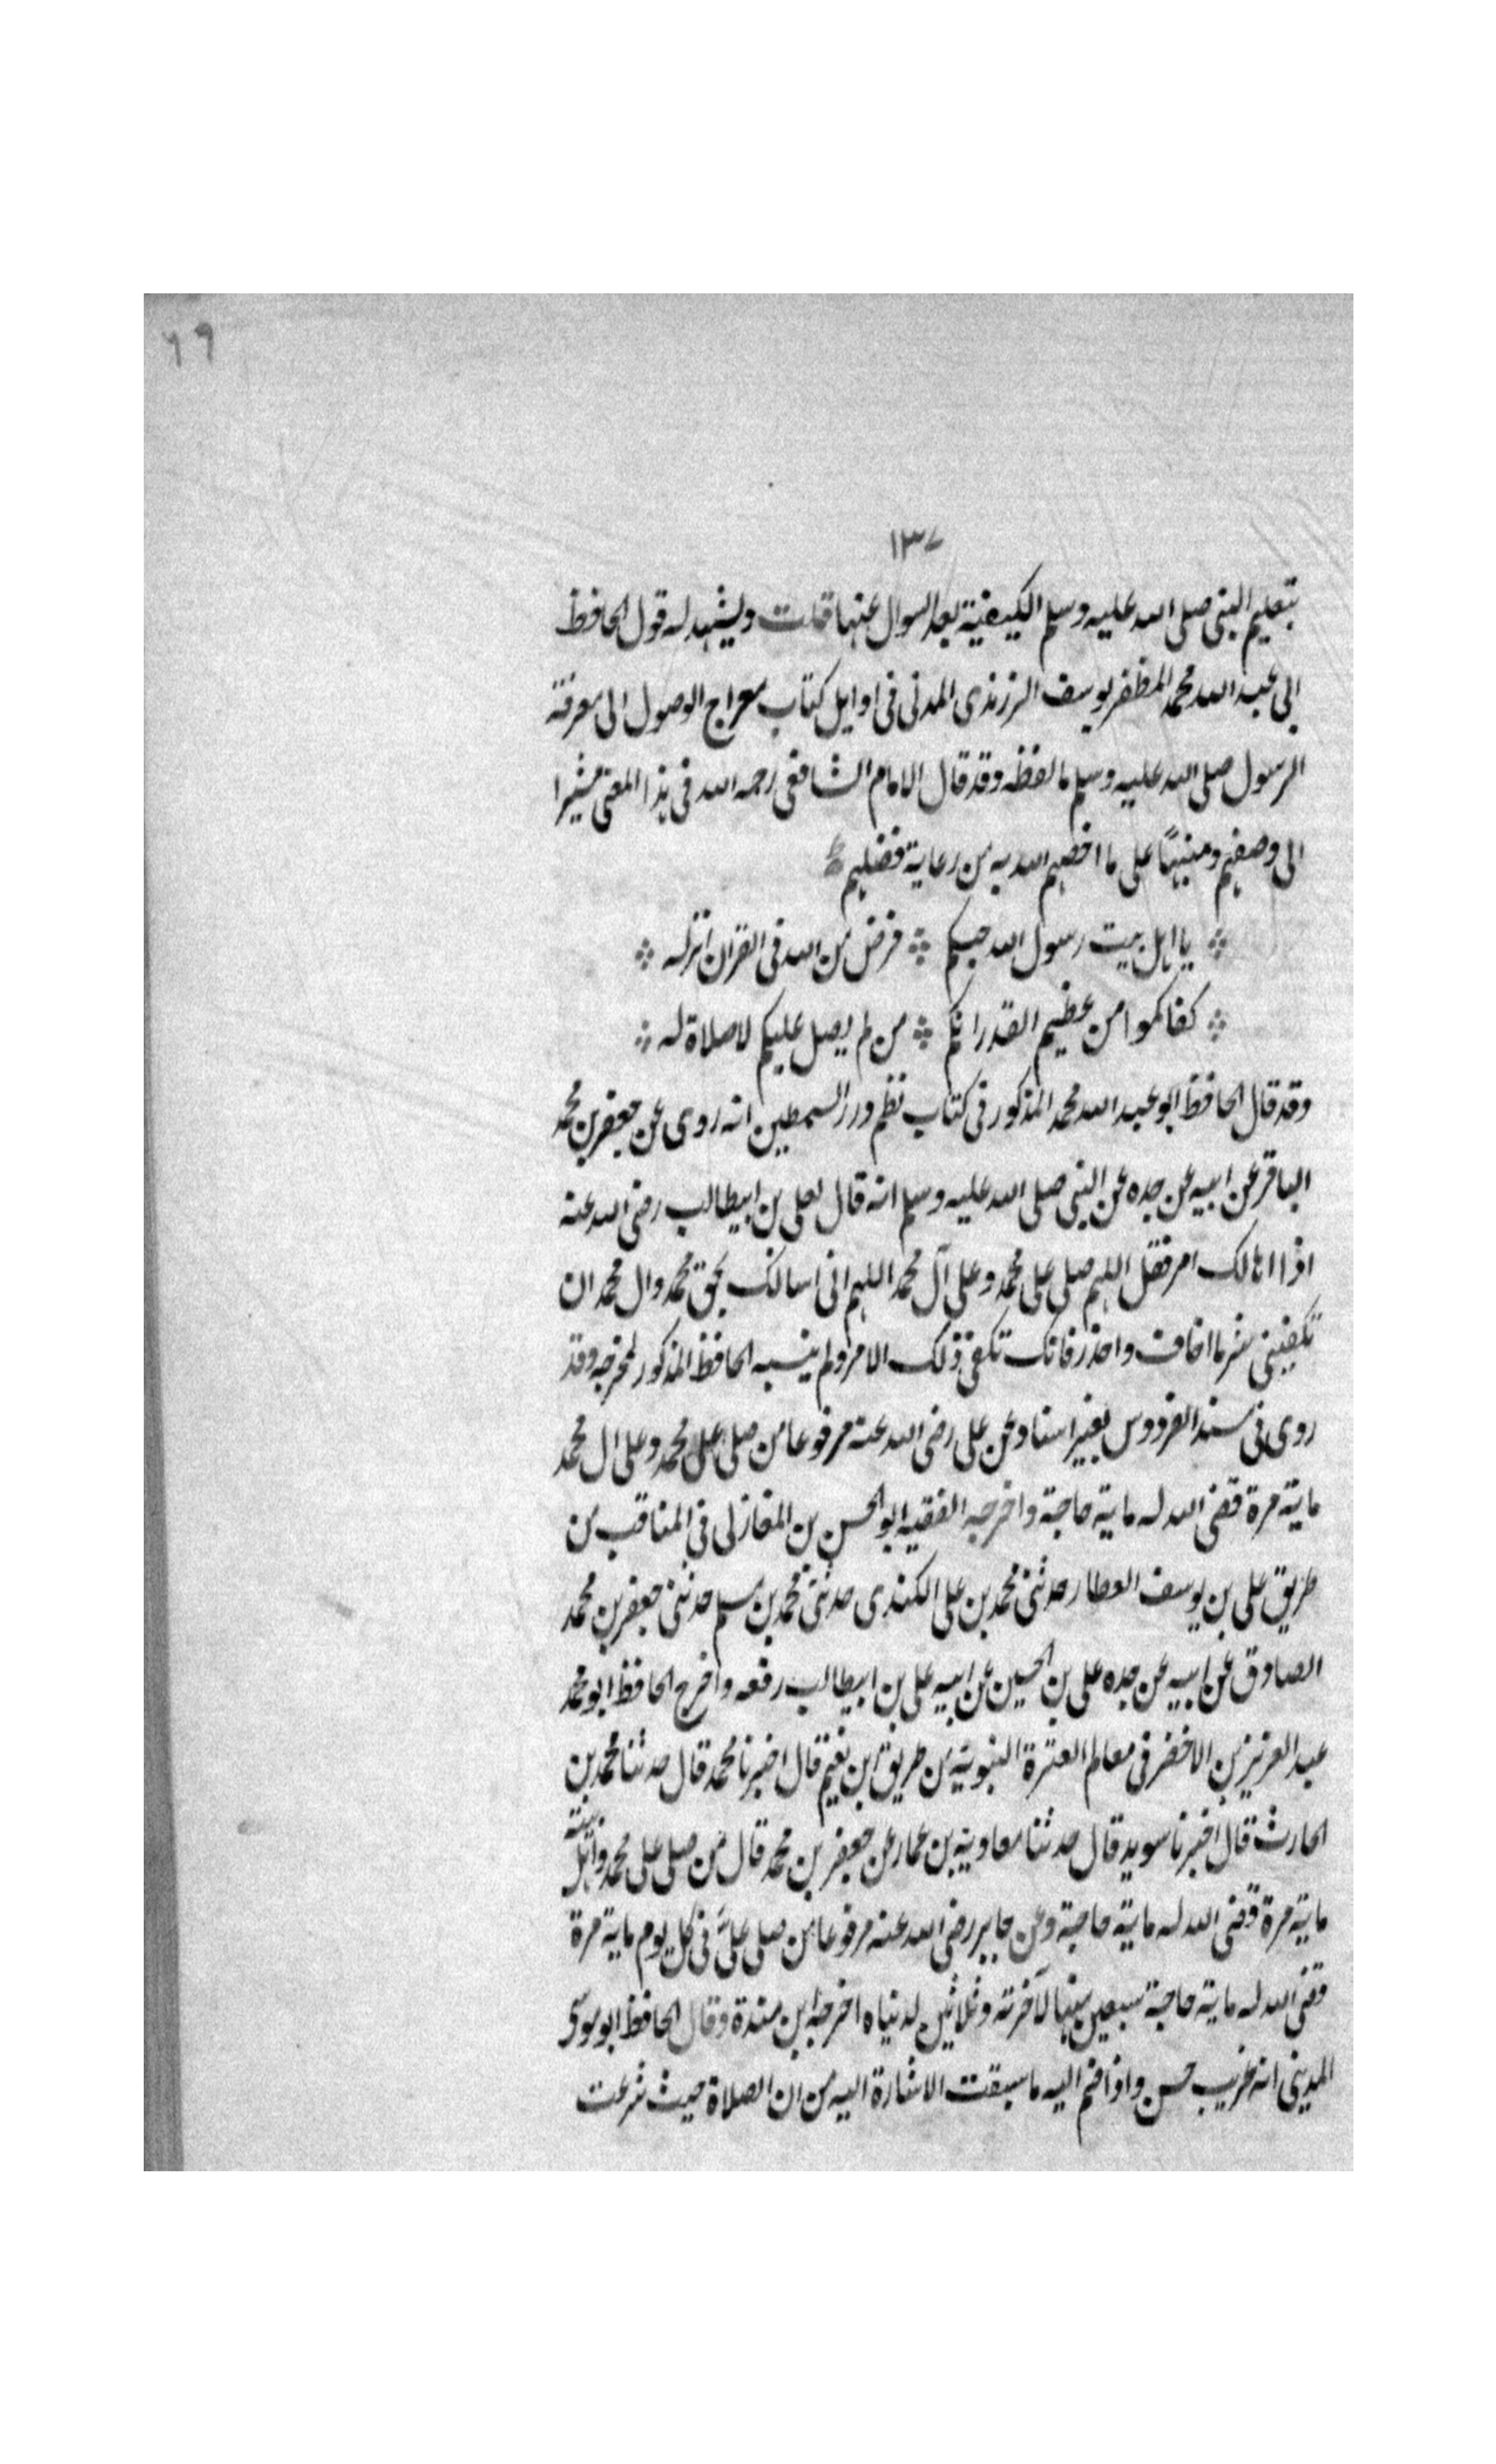 ٦٩
١٣٧
بتعليم النبى صلى الله عليه وسلم الكيفية بعد السوال عنها قلت ويشهد له قول الحافظ
ابى عبد الله محمد المظفر يوسف الزرندى المدنى فى اوايل كتاب معراج الوصول الى معرفة
الرسول صلى الله عليه وسلم ما لفظه وقد قال الامام الشافعى رحمه الله فى هذا المعنى مشيرا
الى وصفهم ومنبها على ما اخصهم الله به من رعاية فضلهم
يا اهل بيت رسول الله حبكم ؞ فرض من الله فى القران انزله
كفاكموا من عظيم القدر انكم ؞ من لم يصل عليكم لا صلاة له
وقد قال الحافظ ابو عبد الله محمد المذكور فى كتاب نظم درر السمطين انه روى عن جعفر بن محمد
الباقر عن ابيه عن جده عن النبى صلى الله عليه وسلم انه قال لعلى بن ابيطالب رضى الله عنه
اذا اهالك امر فقل اللهم صلى على محمد وعلى آل محمد اللهم انى اسالك بحق محمد وال محمد ان
تكفينى شر ما اخاف واحذر فانك تكفى ذلك الامر ولم ينسبه الحافظ المذكور لمخرجه وقد
روى فى مسند الفردوس بغير اسناد عن على رضى الله عنه مرفوعا من صلى على محمد وعلى ال محمد
ماية مرة قضى الله له ماية حاجة واخرجه الفقيه ابو الحسن بن المغازلى فى المناقب من
طريق على بن يوسف العطار حدثنى محمد بن على الكندى حدثنى محمد بن مسلم حدثنى جعفر بن محمد
الصادق عن ابيه عن جده على بن الحسين عن ابيه على بن ابيطالب رفعه واخرج الحافظ ابو محمد
عبد العزيز بن الاخضر فى معالم العترة النبوية من طريق ابن نعيم قال اخبرنا محمد قال حدثنا محمد بن
الحارث قال اخبرنا سويد قال حدثنا معاوية بن عمار عن جعفر بن محمد قال من صلى على محمد واهل بيته
ماية مرة قضى الله له ماية حاجة وعن جابر رضى الله عنه مرفوعا من صلى علىّ فى كل يوم ماية مرة
قضى الله له ماية حاجة سبعين منها لآخرته وثلاثين لدنياه اخرجه ابن مندة وقال الحافظ ابو موسى
المدينى انه غريب حسن واذا ضم اليه ما سبقت الاشارة اليه من ان الصلاة حيث شرعت